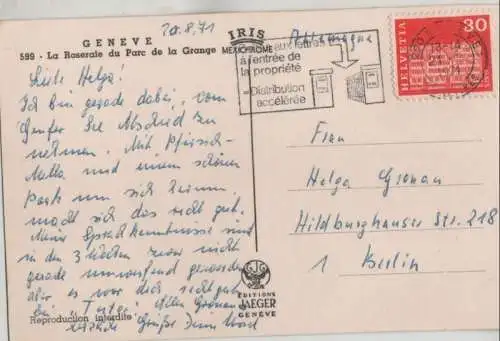 20.8.71
GENEVE
599 - La Roseraie du Parc de la Grange
IRIS
MEXICHROME
aux lettres
à l'entrée de
la propriété
=Distribution
accélérée
Allemagne
HELVETIA
30
Liebe Helga!
Ich bin gerade dabei, vom
Genfer See Abschied zu
nehmen. Mit Pfirsich-
Melba und einem schönen
Park um sich herum,
macht sich das recht gut.
Meine Sprachkenntnisse sind
in den 3 Wochen zwar nicht
gerade umwerfend geworden
aber es war doch recht gut
Grüße Dein
Frau
Helga Gronau
Hildburghauser Str. 218
1 Berlin
EDITIONS
JAEGER
GENEVE
Reproduction interdite